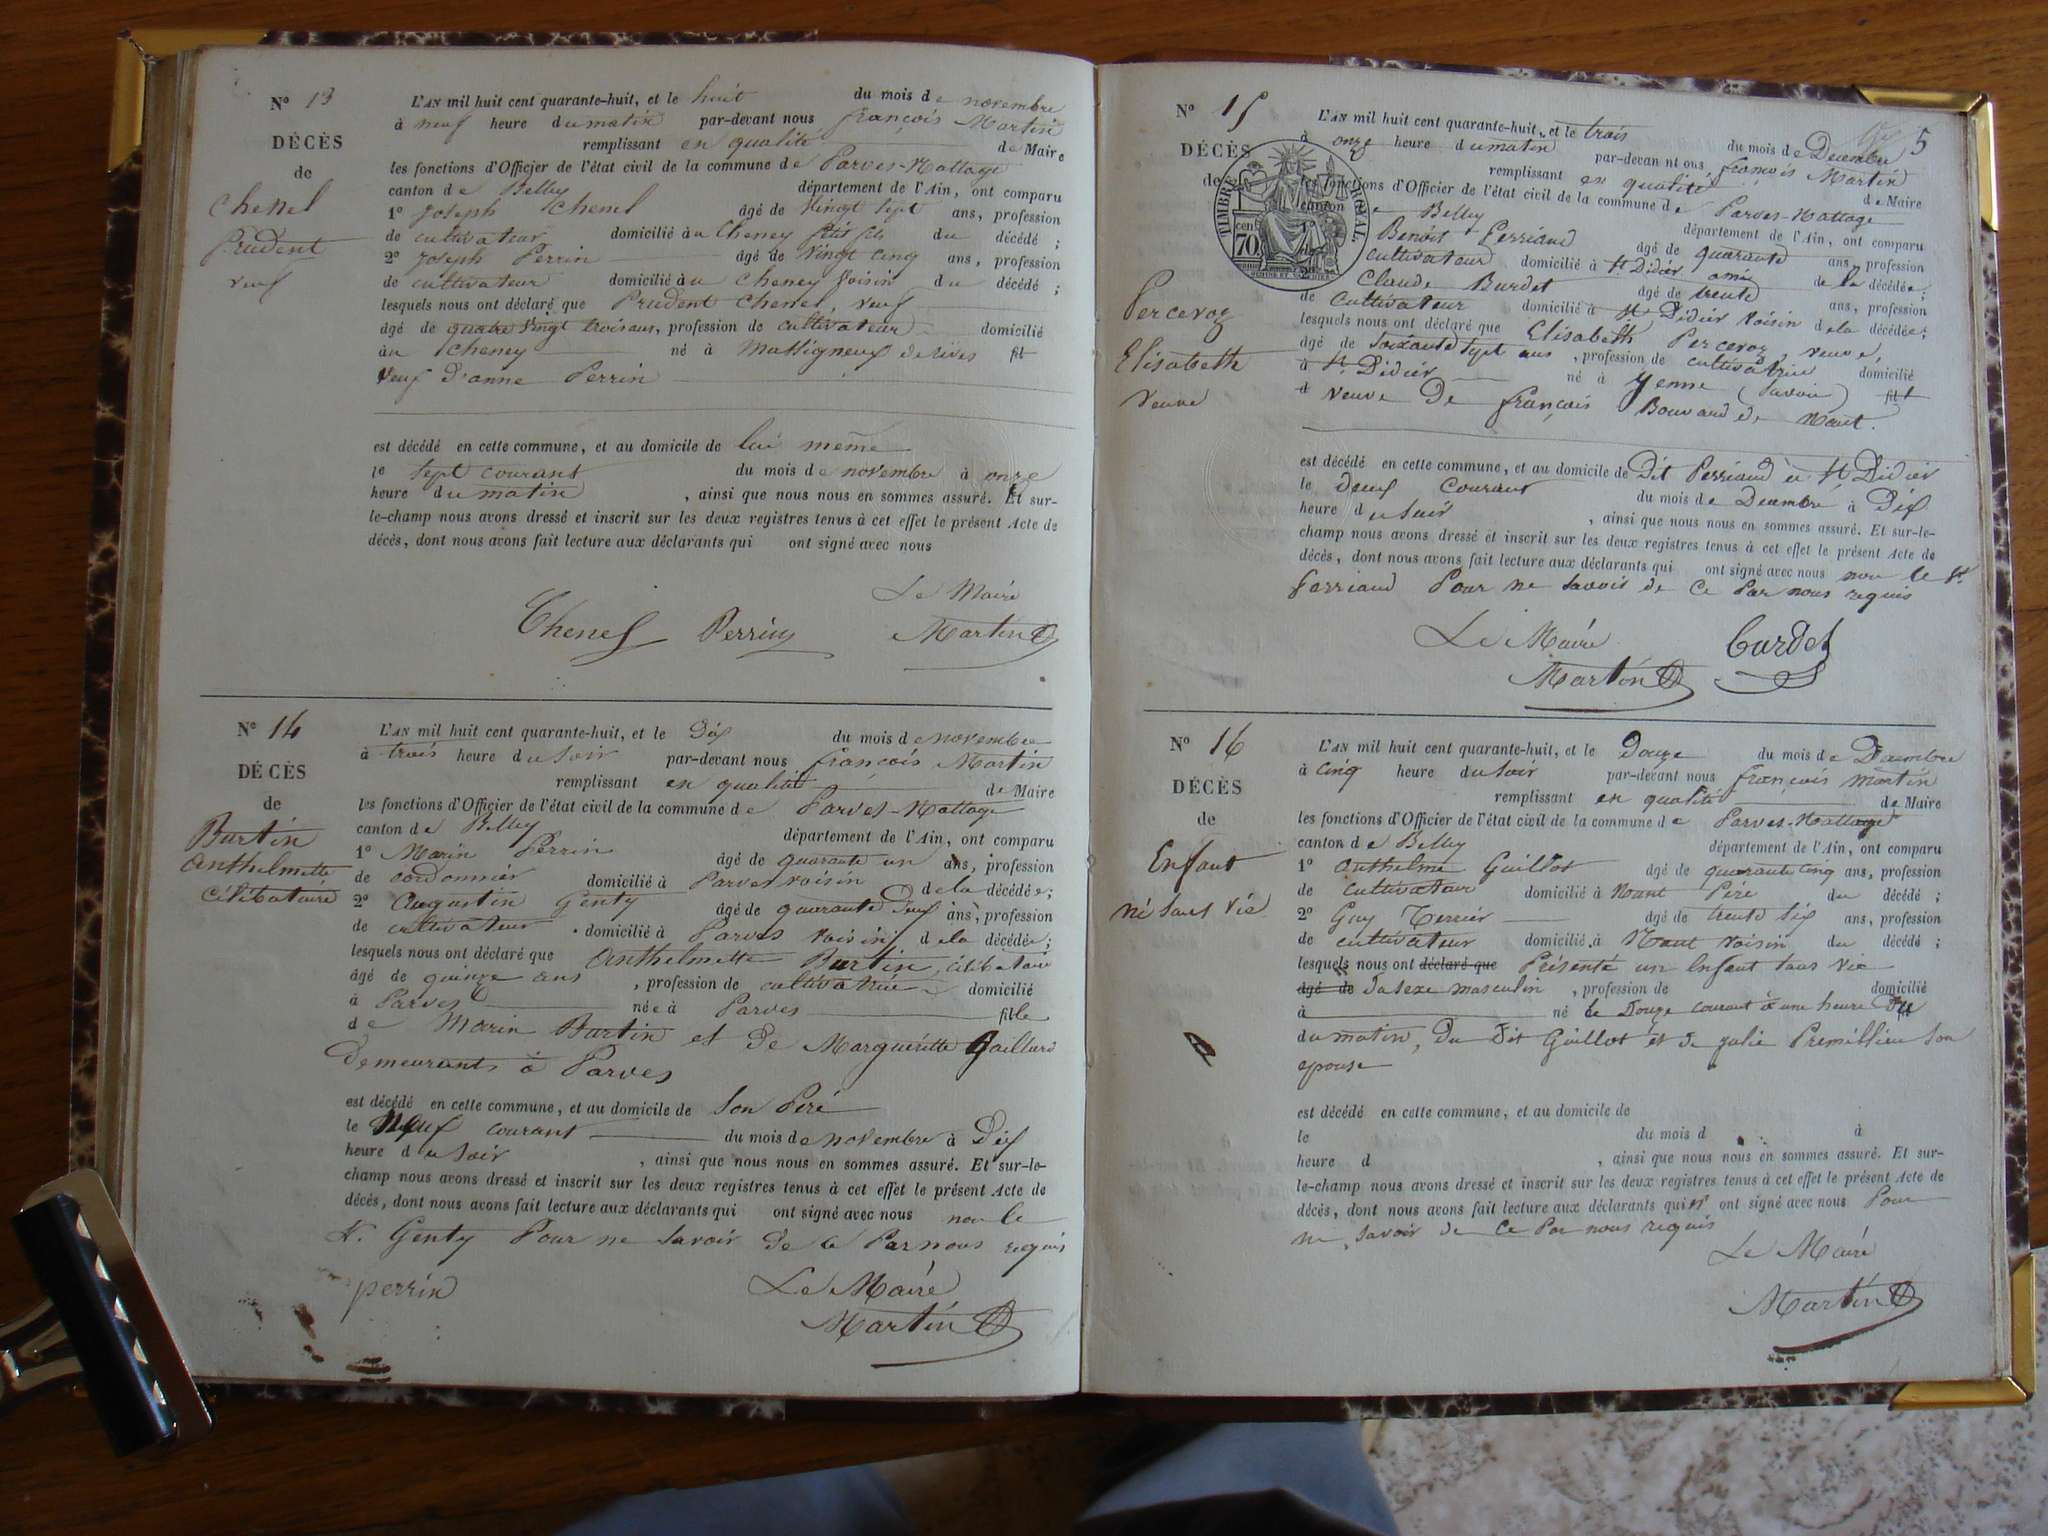 N° 13
DÉCÈS
de
Chenel
Prudent
veuf
L'AN mil huit cent quarante-huit, et le huit du mois de novembre
à neuf heure du matin par-devant nous françois Martin
remplissant en qualité de Maire
les fonctions d'Officier de l'état civil de la commune de Parves-Nattage
canton de Belley département de l'Ain, ont comparu
1° Joseph Chenel âgé de vingt sept ans, profession
de cultivateur domicilié au Cheney petit fils du décédé ;
2° Joseph Perrin âgé de vingt cinq ans, profession
de cultivateur domicilié au Cheney voisin du décédé ;
lesquels nous ont déclaré que Prudent Chenel, veuf
âgé de quatre vingt trois ans, profession de cultivateur domicilié
au Cheney né à Massigneux de rives fil
veuf d'anne Perrin
est décédé en cette commune, et au domicile de lui même
le sept courant du mois de novembre à onze
heure du matin , ainsi que nous nous en sommes assuré. Et sur-
le-champ nous avons dressé et inscrit sur les deux registres tenus à cet effet le présent Acte de
décès, dont nous avons fait lecture aux déclarants qui ont signé avec nous
Le Maire
Chenel Perrin Martin
N° 14
DÉCÈS
de
Burtin
Anthelmette
Célibataire
L'AN mil huit cent quarante-huit, et le Dix du mois de novembre
à trois heure du soir par-devant nous françois Martin
remplissant en qualité de Maire
les fonctions d'Officier de l'état civil de la commune de Parves-Nattage
canton de Belley département de l'Ain, ont comparu
1° Marin Perrin âgé de quarante un ans, profession
de cordonnier domicilié à Parves voisin de la décédée ;
2° Augustin Genty âgé de quarante deux ans, profession
de cultivateur domicilié à Parves voisin de la décédée ;
lesquels nous ont déclaré que Anthelmette Burtin, célibataire
âgé de quinze ans , profession de cultivatrice domicilié
à Parves née à Parves fille
de Marin Burtin et de Marguéritte Gaillard
Demeurants à Parves
est décédé en cette commune, et au domicile de Son Père
le Neuf courant du mois de novembre à Dix
heure du soir , ainsi que nous nous en sommes assuré. Et sur-le-
champ nous avons dressé et inscrit sur les deux registres tenus à cet effet le présent Acte de
décès, dont nous avons fait lecture aux déclarants qui ont signé avec nous non le
Sr. Genty Pour ne savoir de ce Par nous requis
perrin Le Maire
Martin
5
N° 15
DÉCÈS
de
TIMBRE ROYAL
70 cen
Percevoz
Elisabeth
Veuve
L'AN mil huit cent quarante-huit, et le trois du mois de Decembre
à onze heure du matin par-devant nous françois Martin
remplissant en qualité de Maire
les fonctions d'Officier de l'état civil de la commune de Parves-Nattage
canton de Belley département de l'Ain, ont comparu
Benoit Perriand âgé de quarante ans, profession
cultivateur domicilié à St Didier amie de la décédée ;
Claude Burdet âgé de trente ans, profession
de cultivateur domicilié à St Didier voisin de la décédée ;
lesquels nous ont déclaré que Elisabeth Percevoz, veuve,
âgé de soixante sept ans , profession de cultivatrice domicilié
à St Didier né à Yenne (Savoie) fil
d veuve De françois Bouvard de Nant.
est décédé en cette commune, et au domicile de Dit Perriand à St Didier
le deux courant du mois de Decembre à Dix
heure du soir , ainsi que nous nous en sommes assuré. Et sur-le-
champ nous avons dressé et inscrit sur les deux registres tenus à cet effet le présent Acte de
décès, dont nous avons fait lecture aux déclarants qui ont signé avec nous non le Sr.
Perriand Pour ne savoir de ce Par nous requis
Le Maire Burdet
Martin
N° 16
DÉCÈS
de
Enfant
né sans vie
L'AN mil huit cent quarante-huit, et le Douze du mois de Decembre
à cinq heure du soir par-devant nous françois Martin
remplissant en qualité de Maire
les fonctions d'Officier de l'état civil de la commune de Parves-Nattage
canton de Belley département de l'Ain, ont comparu
1° Anthelme Guillot âgé de quarante cinq ans, profession
de cultivateur domicilié à Nant Père du décédé ;
2° Guy Terrier âgé de trente six ans, profession
de cultivateur domicilié à Nant voisin du décédé ;
lesquels nous ont déclaré que Présenté un Enfant sans vie
âgé de du sexe masculin , profession de domicilié
à né le Douze courant à une heure
du matin, du Dit Guillot et de julie Premillieu son
epouse
est décédé en cette commune, et au domicile de
le du mois d à
heure d , ainsi que nous nous en sommes assuré. Et sur-
le-champ nous avons dressé et inscrit sur les deux registres tenus à cet effet le présent Acte de
décès, dont nous avons fait lecture aux déclarants qui n' ont signé avec nous Pour
ne savoir de ce Par nous requis
Le Maire
Martin